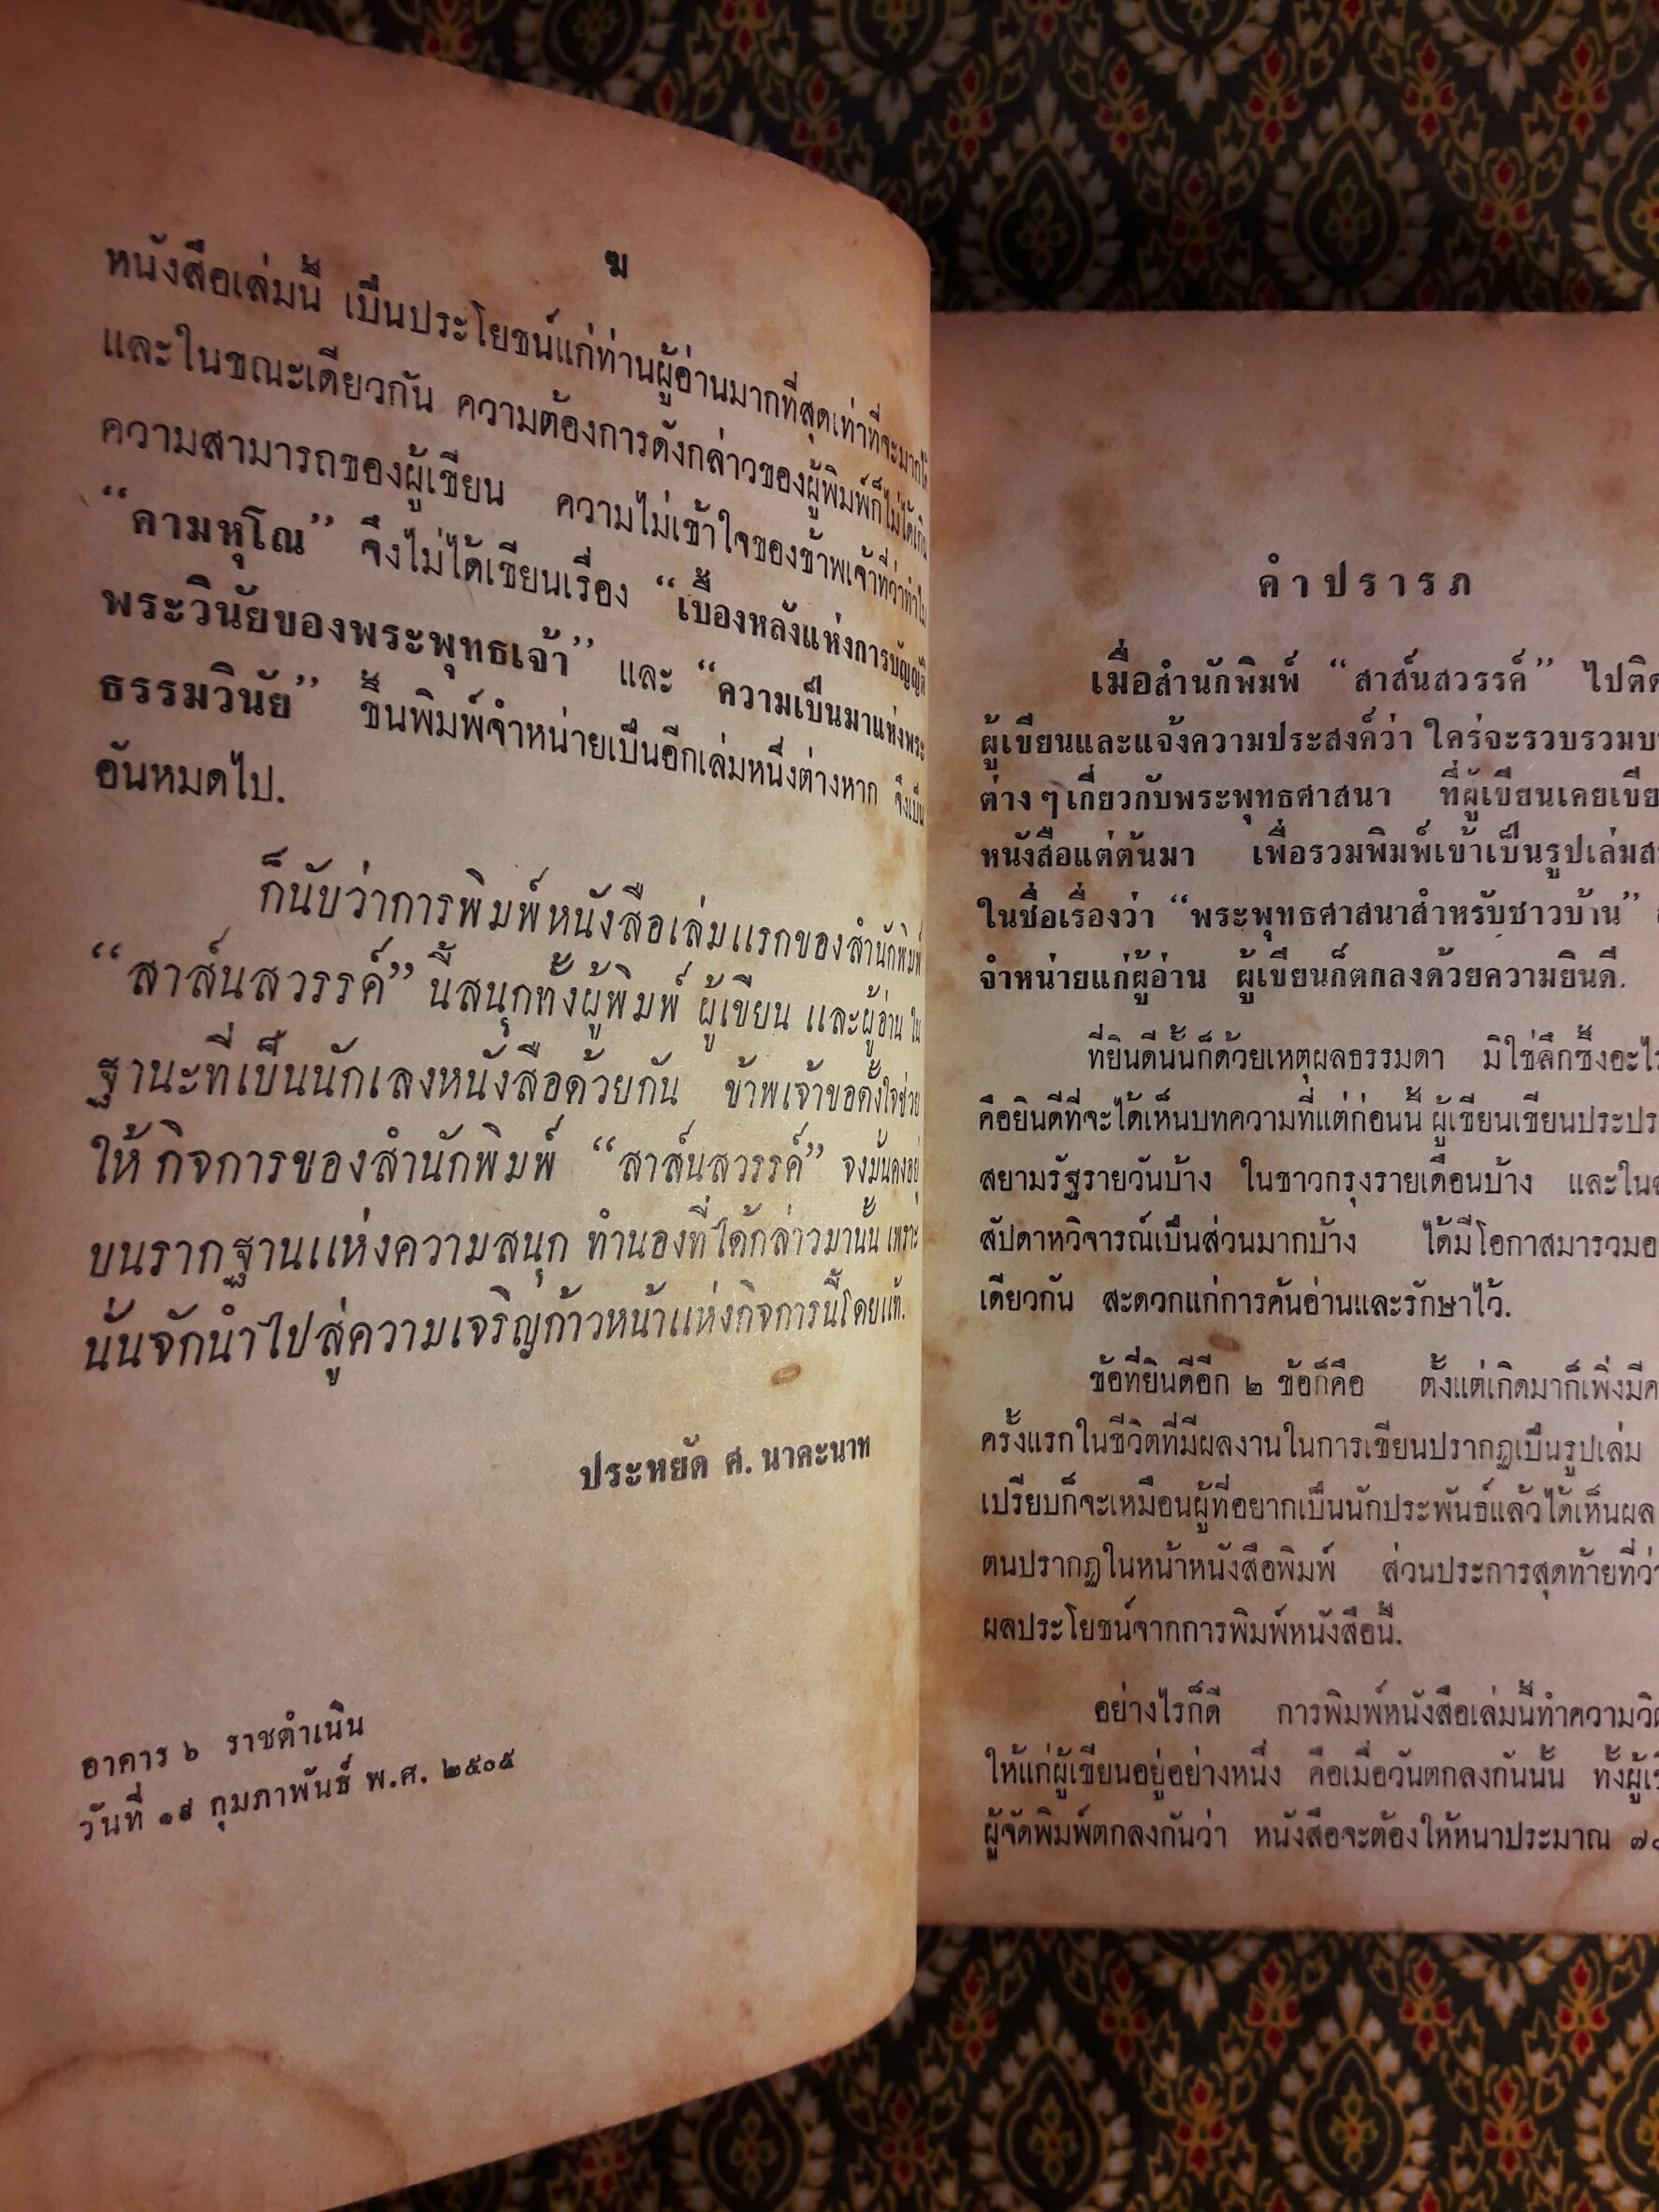 ฆ
หนังสือเล่มนี้ เป็นประโยชน์แก่ท่านผู้อ่านมากที่สุดเท่าที่จะมากได้
และในขณะเดียวกัน ความต้องการดังกล่าวของผู้พิมพ์ก็ไม่ได้เกิน
ความสามารถของผู้เขียน ความไม่เข้าใจของข้าพเจ้าที่ว่าทำไม
“คามหุโณ” จึงไม่ได้เขียนเรื่อง “เบื้องหลังแห่งการบัญญัติ
พระวินัยของพระพุทธเจ้า” และ “ความเป็นมาแห่งพระ
ธรรมวินัย” ขึ้นพิมพ์จำหน่ายเป็นอีกเล่มหนึ่งต่างหาก จึงเป็น
อันหมดไป.
ก็นับว่าการพิมพ์หนังสือเล่มแรกของสำนักพิมพ์
“สาส์นสวรรค์” นี้สนุกทั้งผู้พิมพ์ ผู้เขียน และผู้อ่าน ใน
ฐานะที่เป็นนักเลงหนังสือด้วยกัน ข้าพเจ้าขอตั้งใจช่วย
ให้กิจการของสำนักพิมพ์ “สาส์นสวรรค์” จงมั่นคงอยู่
บนรากฐานแห่งความสนุก ทำนองที่ได้กล่าวมานั้น เพราะ
นั่นจักนำไปสู่ความเจริญก้าวหน้าแห่งกิจการนี้โดยแท้.
ประหยัด ศ. นาคะนาท
อาคาร ๖ ราชดำเนิน
วันที่ กุมภาพันธ์ พ.ศ. ๒๕๐๕
คำปรารภ
เมื่อสำนักพิมพ์ “สาส์นสวรรค์” ไปติด
ผู้เขียนและแจ้งความประสงค์ว่า ใคร่จะรวบรวมบท
ต่าง ๆ เกี่ยวกับพระพุทธศาสนา ที่ผู้เขียนเคยเขีย
หนังสือแต่ต้นมา เพื่อรวมพิมพ์เข้าเป็นรูปเล่มส
ในชื่อเรื่องว่า “พระพุทธศาสนาสำหรับชาวบ้าน”
จำหน่ายแก่ผู้อ่าน ผู้เขียนก็ตกลงด้วยความยินดี.
ที่ยินดีนั้นก็ด้วยเหตุผลธรรมดา มิใช่ลึกซึ้งอะไร
คือยินดีที่จะได้เห็นบทความที่แต่ก่อนนี้ ผู้เขียนเขียนประปร
สยามรัฐรายวันบ้าง ในชาวกรุงรายเดือนบ้าง และใน
สัปดาหวิจารณ์เป็นส่วนมากบ้าง ได้มีโอกาสมารวมอ
เดียวกัน สะดวกแก่การค้นอ่านและรักษาไว้.
ข้อที่ยินดีอีก ๒ ข้อก็คือ ตั้งแต่เกิดมาก็เพิ่งมีค
ครั้งแรกในชีวิตที่มีผลงานในการเขียนปรากฏเป็นรูปเล่ม
เปรียบก็จะเหมือนผู้ที่อยากเป็นนักประพันธ์แล้วได้เห็นผล
ตนปรากฏในหน้าหนังสือพิมพ์ ส่วนประการสุดท้ายที่ว่า
ผลประโยชน์จากการพิมพ์หนังสือนี้.
อย่างไรก็ดี การพิมพ์หนังสือเล่มนี้ทำความวิต
ให้แก่ผู้เขียนอยู่อย่างหนึ่ง คือเมื่อวันตกลงกันนั้น ทั้งผู้เขี
ผู้จัดพิมพ์ตกลงกันว่า หนังสือจะต้องให้หนาประมาณ ๗๐